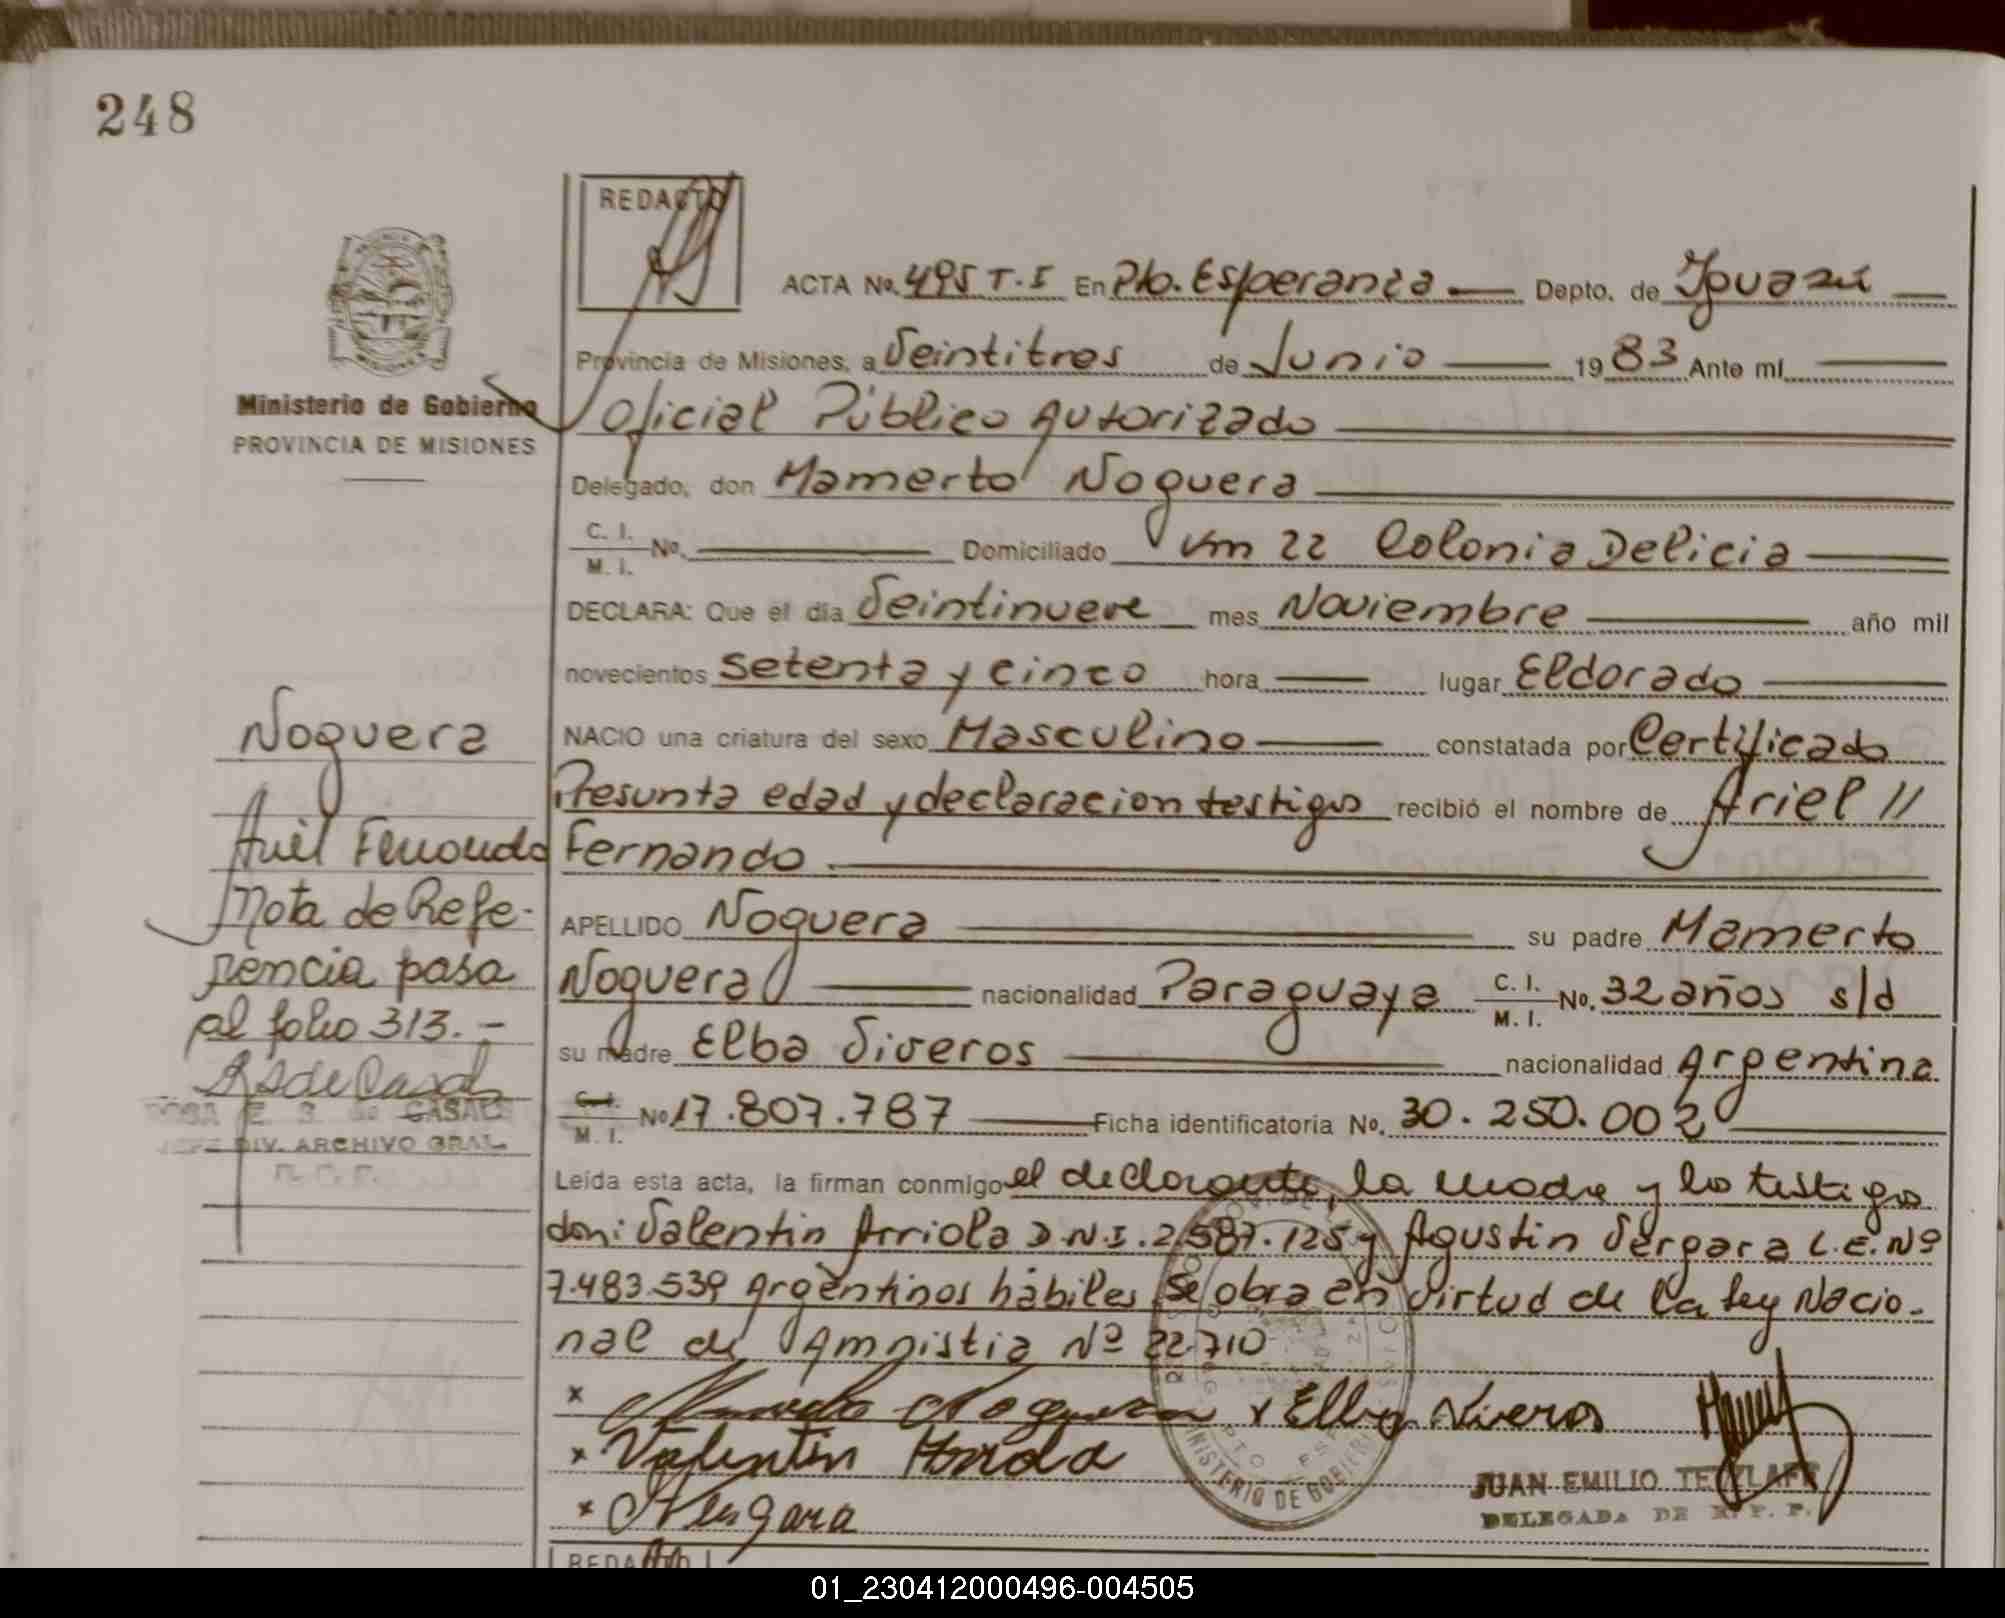 248
REDACTO
ACTA No. 495 T. I En Pto. Esperanza Depto. de Iguazú
Provincia de Misiones, a Veintitres de Junio 1983 Ante mí
Ministerio de Gobierno
Oficial Público Autorizado
PROVINCIA DE MISIONES
Delegado, don Mamerto Noguera
C. I. M. I. No. Domiciliado Km 22 Colonia Delicia
DECLARA: Que el día Veintinueve mes Noviembre año mil
novecientos setenta y cinco hora lugar Eldorado
NACIO una criatura del sexo Masculino constatada por Certificado
Presunta edad y declaracion testigos recibió el nombre de Ariel //
Fernando
APELLIDO Noguera su padre Mamerto
Noguera nacionalidad Paraguaya C. I. M. I. No. 32 años s/d
su madre Elba Viveros nacionalidad Argentina
C. I. M. I. No 17.807.787 Ficha identificatoria No. 30.250.002
Leída esta acta, la firman conmigo el declarante, la madre y los testigos
don: Valentin Arriola D.N.I. 2.587.125 y Agustin Vergara L.E. Nº
7.483.539 Argentinos hábiles se obra en virtud de la ley Nacio-
nal de Amnistia Nº 22.710
x Noguera x Elba Viveros
x Valentin
x Vergara
JUAN EMILIO TETZLAFF
DELEGADA DE R. P. P.
MINISTERIO DE GOBIERNO
Noguera
Ariel Fernando
Nota de Refe-
rencia pasa
al folio 313.-
ROSA E. S. de CASALS
JEFE DIV. ARCHIVO GRAL.
REDACTO
01_230412000496-004505